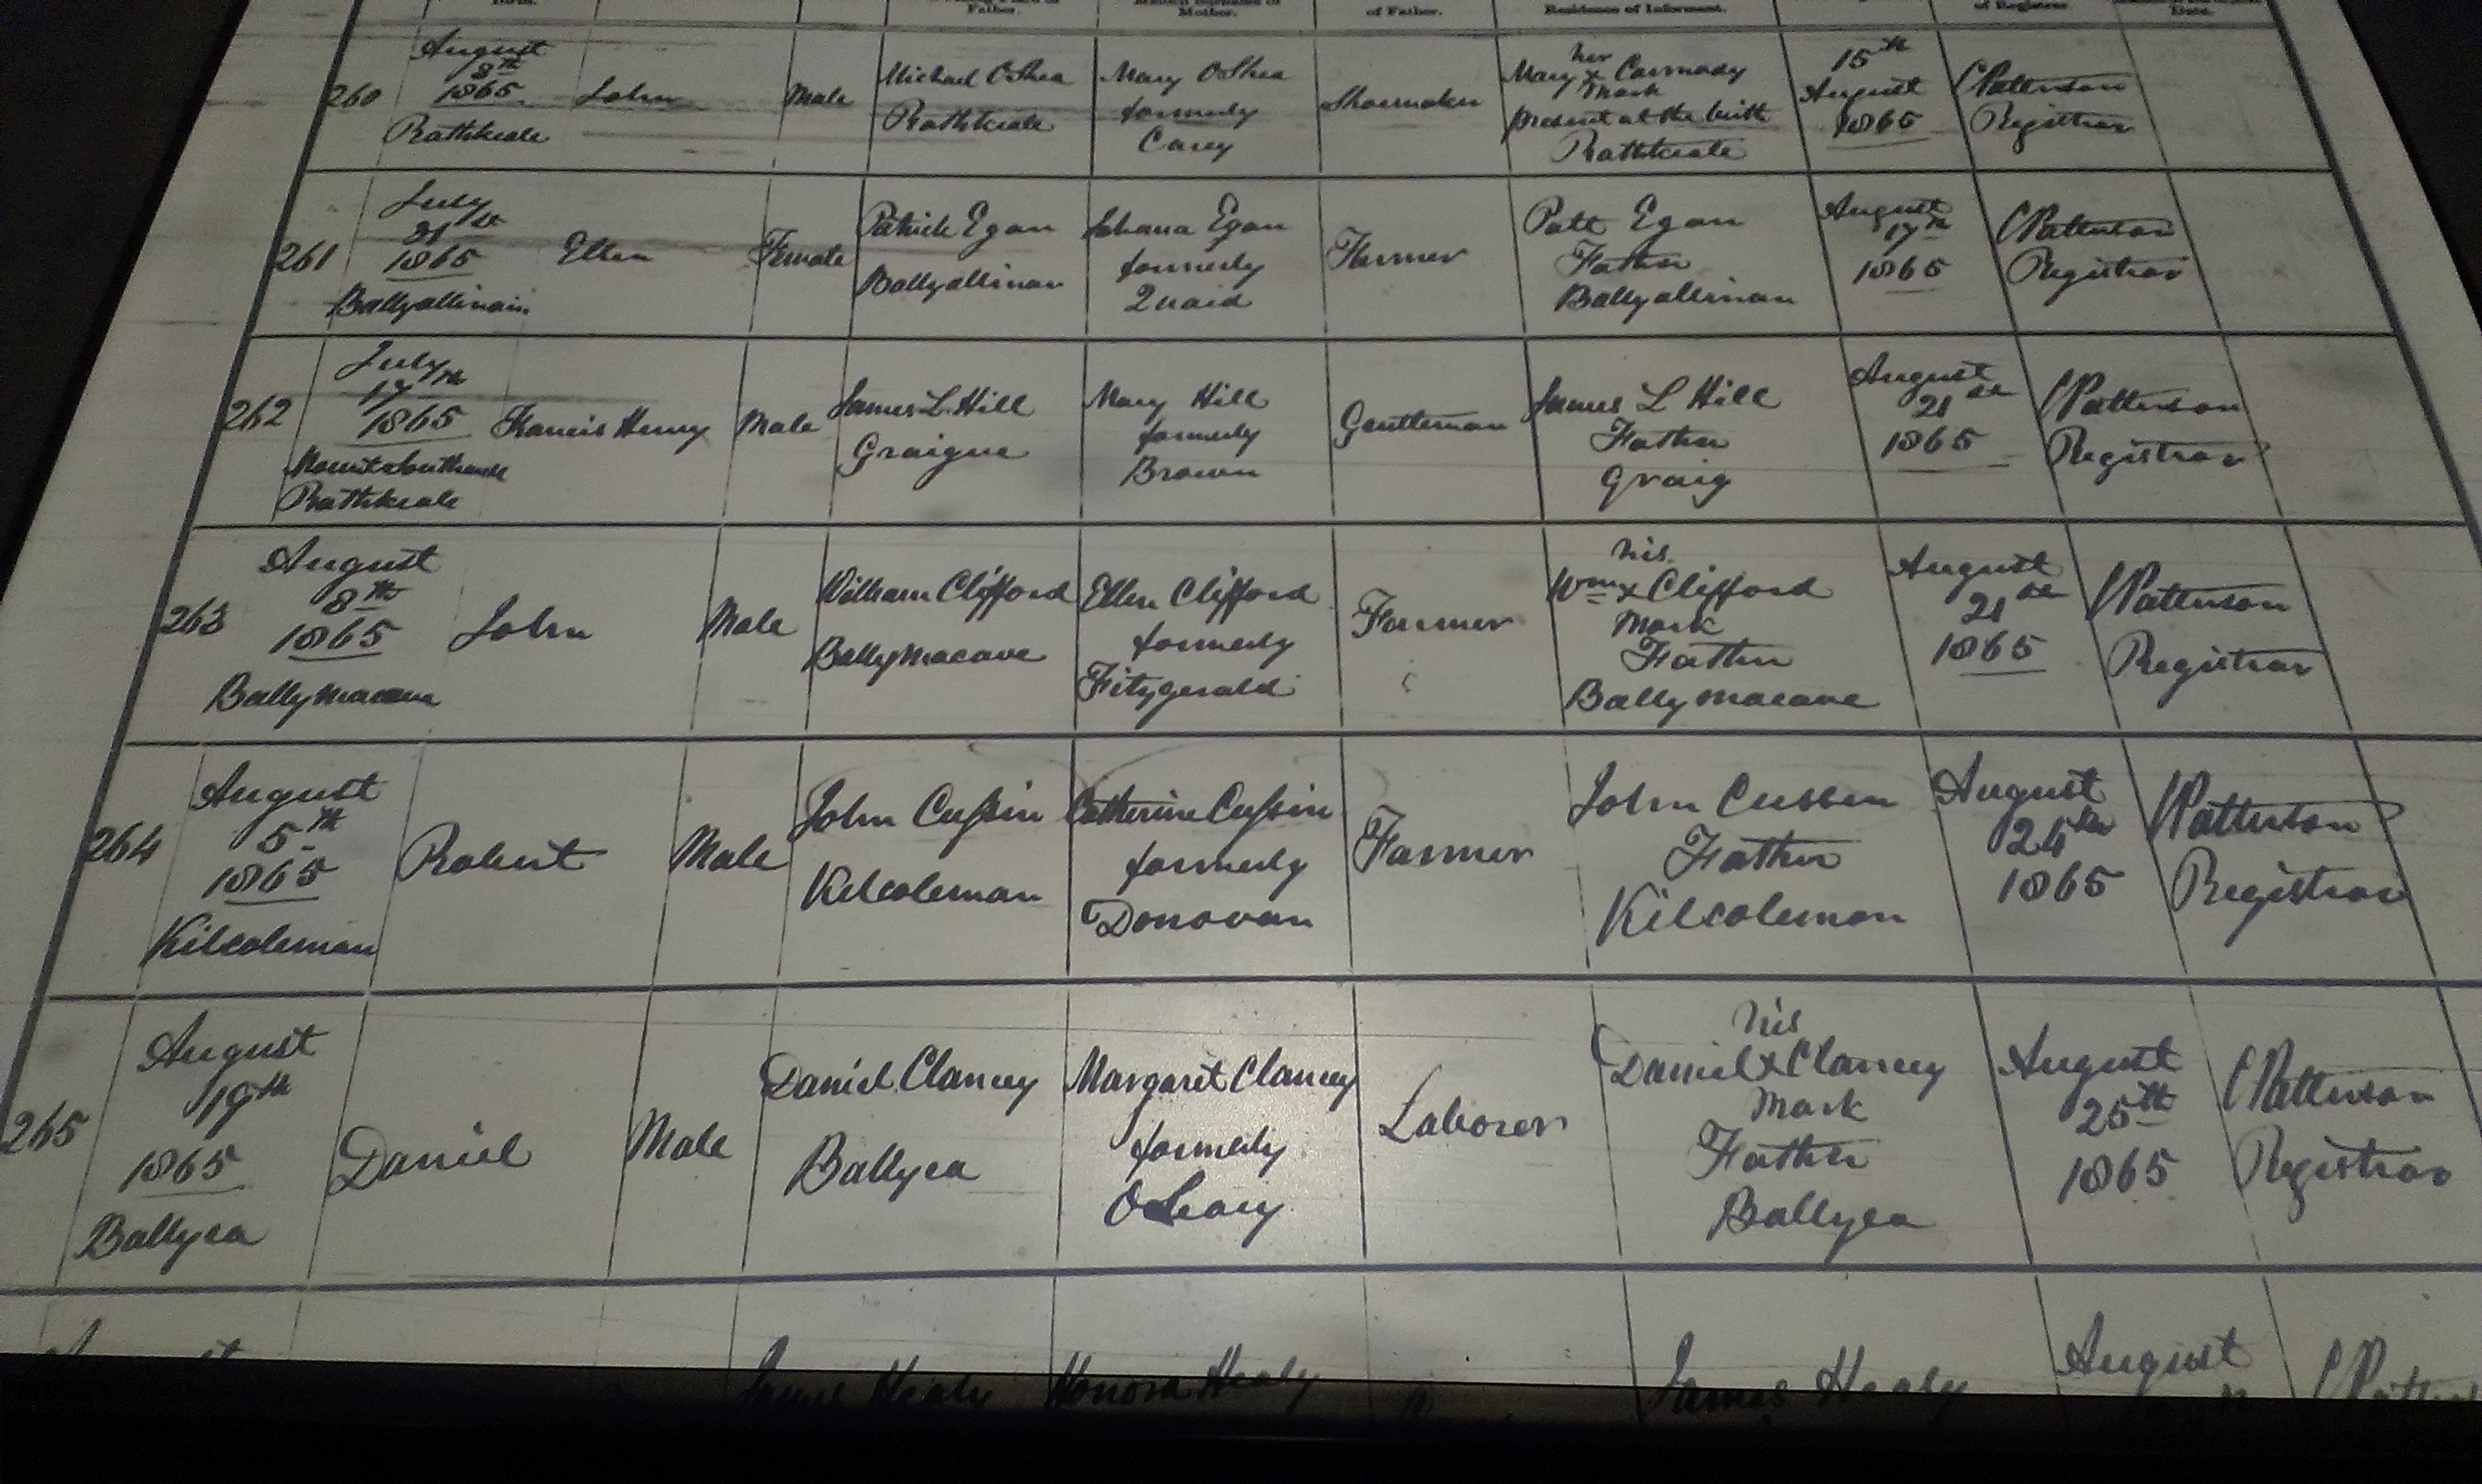 Birth.
Father.
Mother.
of Father.
Residence of Informant.
of Registrar.
Date.
260
August
8th
1865
Rathkeale
John
Male
Michael OShea
Rathkeale
Mary OShea
formerly
Carey
Shoemaker
her
Mary x Carmody
Mark
present at the birth
Rathkeale
15th
August
1865
C Patterson
Registrar
261
July
21st
1865
Ballyallinan
Ellen
Female
Patrick Egan
Ballyallinan
Johana Egan
formerly
Quaid
Farmer
Patt Egan
Father
Ballyallinan
August
17th
1865
C Patterson
Registrar
262
July
17th
1865
Rathkeale
Francis Henry
Male
James L Hill
Graigue
Mary Hill
formerly
Brown
Gentleman
James L Hill
Father
Graig
August
21st
1865
C Patterson
Registrar
263
August
8th
1865
Ballymacave
John
Male
William Clifford
Ballymacave
Ellen Clifford
formerly
Fitzgerald
Farmer
his
Wm x Clifford
Mark
Father
Ballymacave
August
21st
1865
C Patterson
Registrar
264
August
5th
1865
Kilcoleman
Robert
Male
John Cussin
Kilcoleman
Catherine Cussin
formerly
Donovan
Farmer
John Cussen
Father
Kilcoleman
August
24th
1865
C Patterson
Registrar
265
August
19th
1865
Ballyea
Daniel
Male
Daniel Clancy
Ballyea
Margaret Clancy
formerly
OLeary
Laborer
his
Daniel x Clancy
Mark
Father
Ballyea
August
25th
1865
C Patterson
Registrar
August
James Healy
Honora Healy
James Healy
August
C Patterson